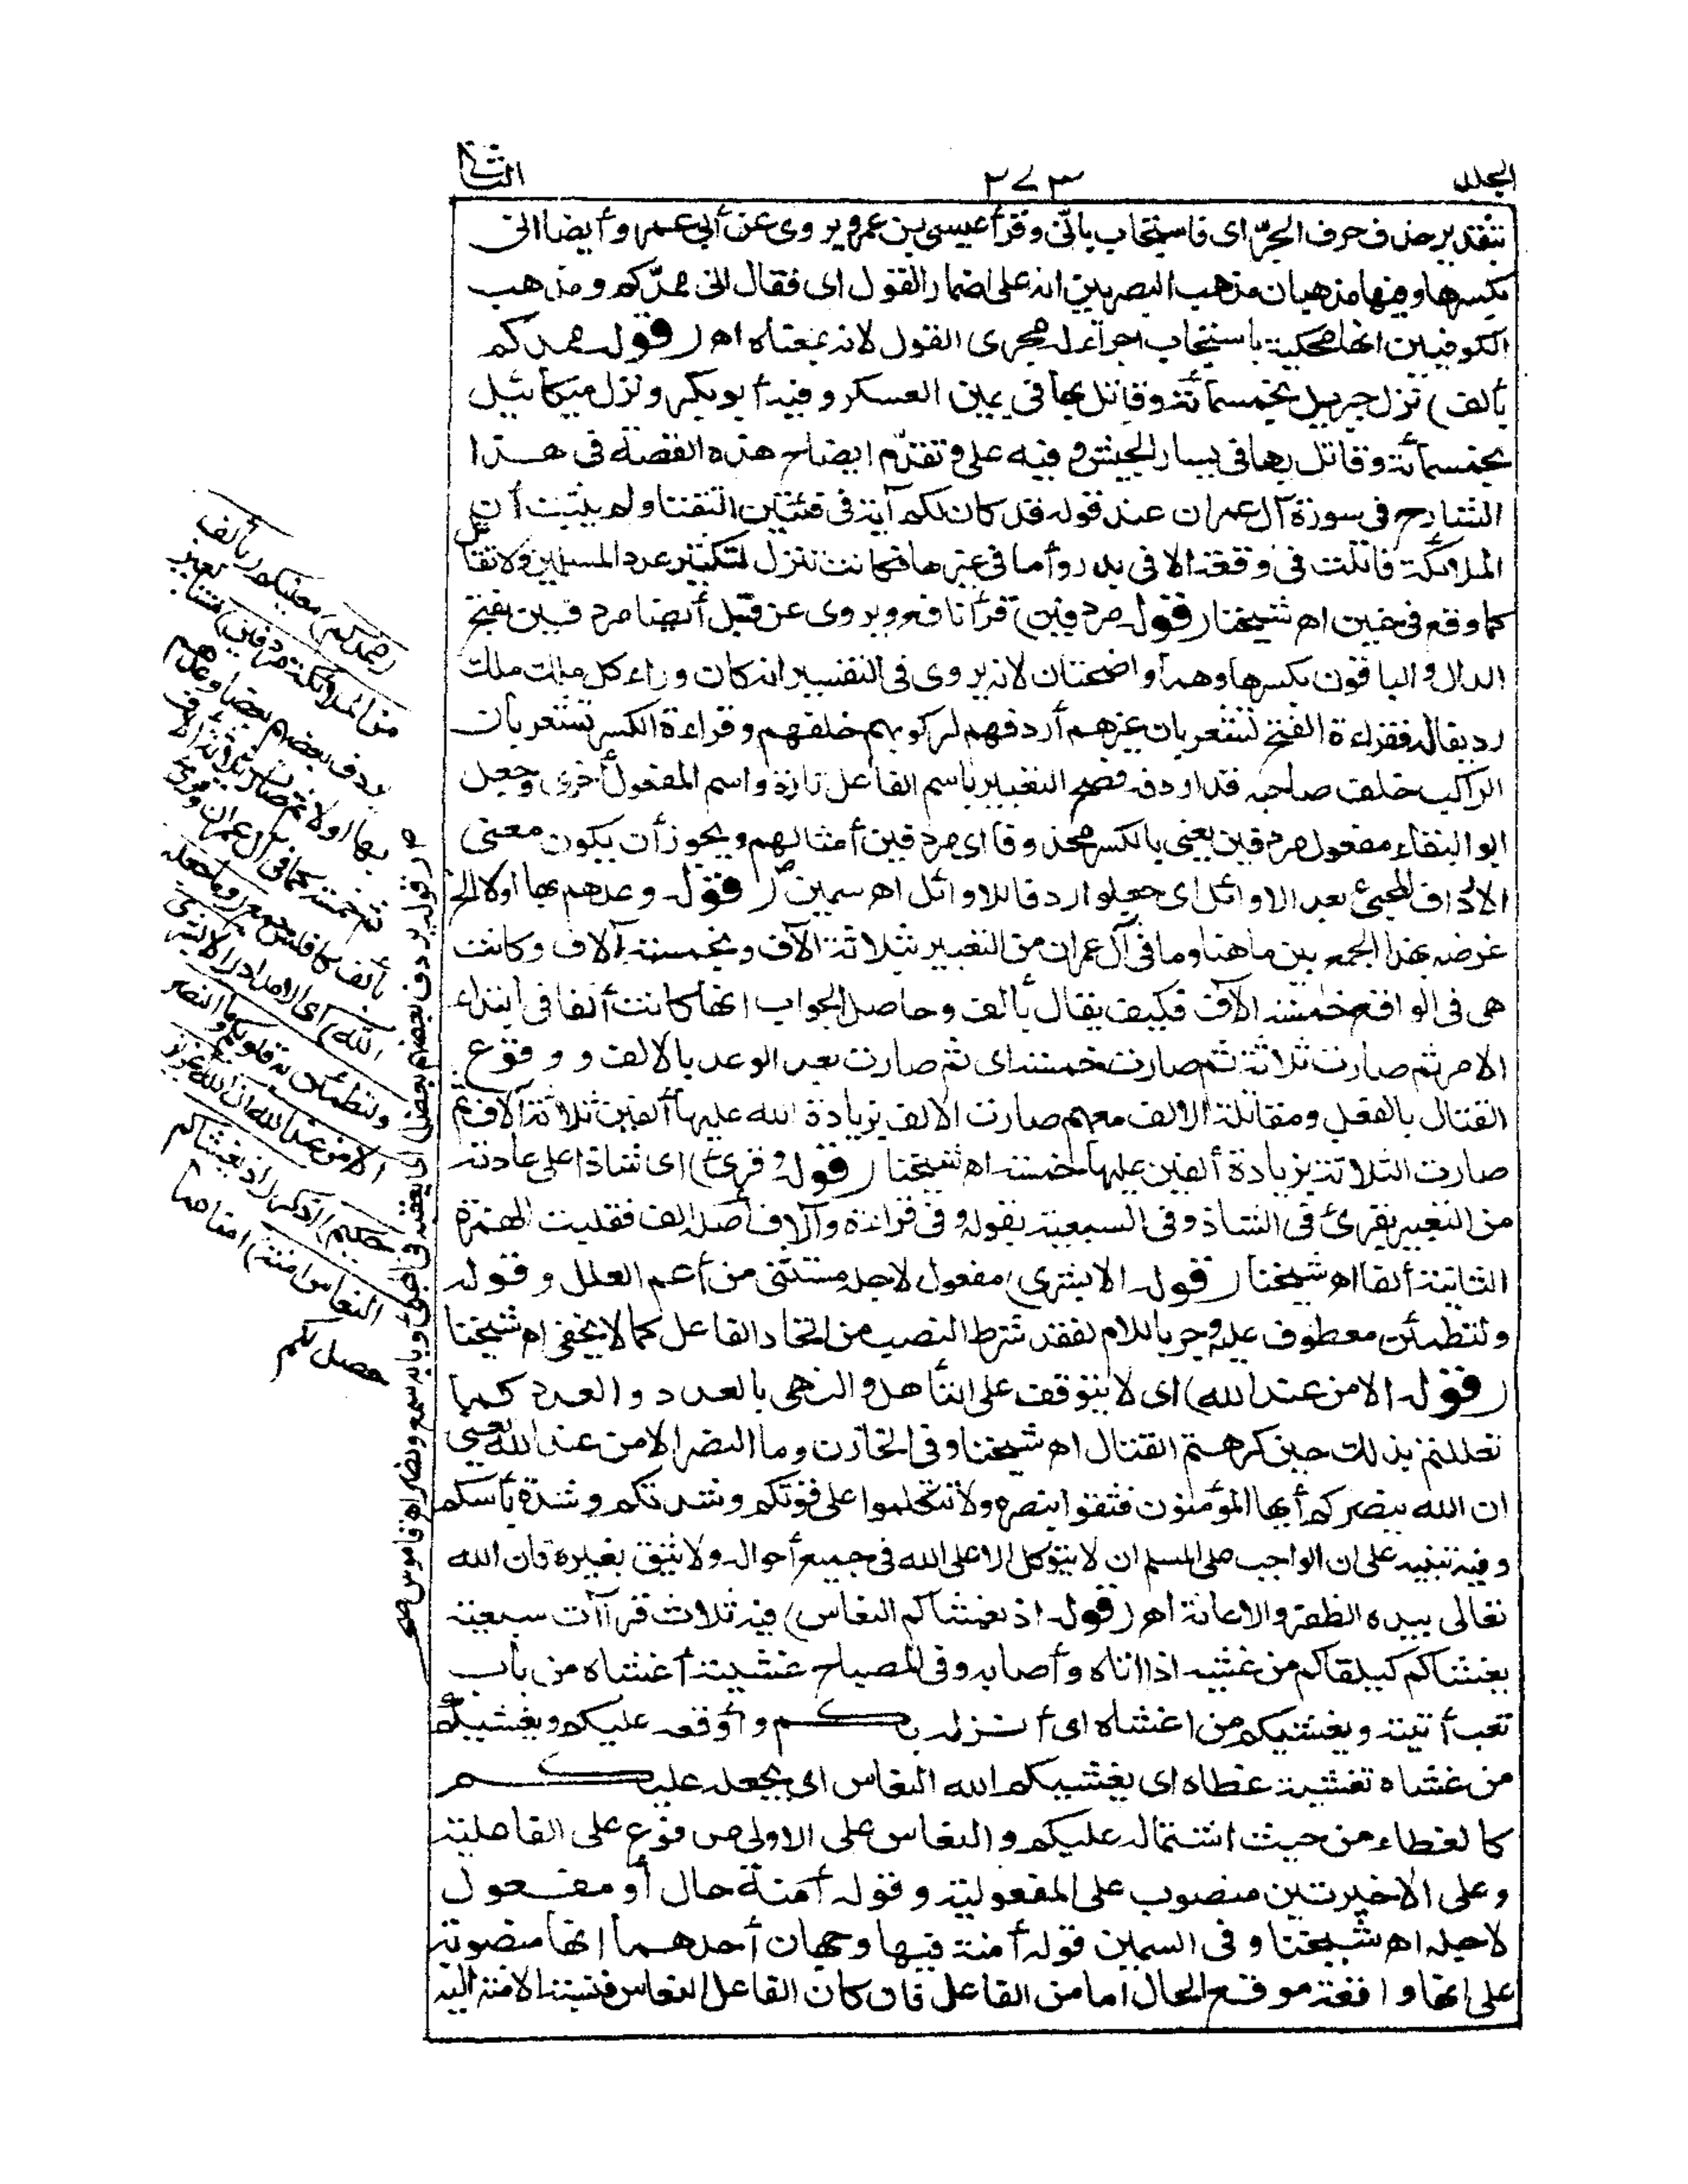 المجلد ٢٧٣ الثانى
بتقدير حذف حرف الجرّ اى فاستجاب بانّى وقرأ عيسى بن عمرو يروى عن أبى عمرو أيضا انى
بكسرها وفيها مذهبان مذهب البصريين انه على اضمار القول اى فقال انى ممدّكم ومذهب
الكوفيين انها محكية باستجاب اجراء له مجرى القول لانه بمعناه اهـ (قوله ممدكم
بألف) نزل جبريل بخمسمائة وقاتل بها فى يمين العسكر وفيه أبو بكر ونزل ميكائيل
بخمسمائة وقاتل بها فى يسار الجيش وفيه على وتقدّم ايضاح هذه القصة فى هذا
الشارح فى سورة آل عمران عند قوله قد كان لكم آية فى فئتين التقتا ولم يثبت أن
الملائكة قاتلت فى وقعة الا فى بدر وأما فى غيرها فكانت تنزل لتكثير عدد المسلمين ولا تقاتل
كما وقع فى حنين اهـ شيخنا (قوله مردفين) قرأ نافع ويروى عن قنبل أيضا مردفين بفتح
الدال والباقون بكسرها وهما واضحتان لانه يروى فى التفسير انه كان وراء كل ملك ملك
رديفا له فقراءة الفتح تشعر بان غيرهم أردفهم لركوبهم خلفهم وقراءة الكسر تشعر بأن
الراكب خلف صاحبه قد اردفه فصح التعبير باسم الفاعل تارة واسم المفعول أخرى وجعل
ابو البقاء مفعول مردفين يعنى بالكسر محذوفا اى مردفين أمثالهم ويجوز أن يكون معنى
الارداف المجئ بعد الاوائل اى جعلوا ردفا للاوائل اهـ سمين (قوله وعدهم بها اولا الخ
غرضه بهذا الجمع بين ما هنا وما فى آل عمران من التعبير بثلاثة آلاف وبخمسة آلاف وكانت
هى فى الواقع خمسة آلاف فكيف يقال بألف وحاصل الجواب انها كانت ألفا فى ابتداء
الامر ثم صارت ثلاثة ثم صارت خمسة اى ثم صارت بعد الوعد بالالف ووقوع
القتال بالفعل ومقاتلة الالف معهم صارت الالف بزيادة الله عليها ألفين ثلاثة آلاف ثم
صارت الثلاثة بزيادة ألفين عليها خمسة اهـ شيخنا (قوله وقرئ) اى شاذا على عادته
من التعبير بقرئ فى الشاذ وفى السبعية بقوله وفى قراءة وآلاف أصله الف فقلبت الهمزة
الثانية ألفا اهـ شيخنا (قوله الا بشرى) مفعول لاجله مستثنى من أعم العلل وقوله
ولتطمئن معطوف عليه وجر باللام لفقد شرط النصب من اتحاد الفاعل كما لا يخفى اهـ شيخنا
(قوله الا من عند الله) اى لا يتوقف على التأهل والتهى بالعدد والعدد كما
تعللتم بذلك حين كرهتم القتال اهـ شيخنا وفى الخازن وما النصر الا من عند الله يعنى
ان الله ينصركم أيها المؤمنون فثقوا بنصره ولا تتكلوا على قوّتكم وشدتكم وشدة بأسكم
وفيه تنبيه على ان الواجب على المسلم ان لا يتوكل الا على الله فى جميع أحواله ولا يثق بغيره فان الله
تعالى بيده الظفر والاعانة اهـ (قوله اذ يغشاكم النعاس) فيه ثلاث قراآت سبعية
يغشاكم كيلقاكم من غشيه اذا اتاه وأصابه وفى المصباح غشيته أغشاه من باب
تعب أتيته ويغشيكم من اغشاه اى أنزله بكم وأوقعه عليكم ويغشيكم
من غشاه تغشية غطاه اى يغشيكم الله النعاس اى يجعله عليكم
كالغطاء من حيث اشتماله عليكم والنعاس على الاولى مرفوع على الفاعلية
وعلى الاخيرتين منصوب على المفعولية وقوله أمنة حال أو مفعول
لاجله اهـ شيخنا وفى السمين قوله أمنة فيها وجهان أحدهما انها منصوبة
على انها واقعة موقع الحال اما من الفاعل فان كان الفاعل النعاس فنسبة الامنة اليه
(ممدكم) معينكم (بألف
من الملائكة مردفين) متتابعين
يردف بعضهم بعضا وعدهم
بها اولا ثم صارت ثلاثة آلاف
ثم خمسة كما فى آل عمران وقرئ
بآلف كافلس جمع (وما جعله
الله) اى الامداد (الا بشرى
ولتطمئن به قلوبكم وما النصر
الا من عند الله ان الله عزيز
حكيم) اذكر (اذ يغشاكم
النعاس امنة) امنا مما
حصل لكم
قوله يردف بعضهم بعضا اى يعقبه وبابه سمع ونصر اهـ قاموس